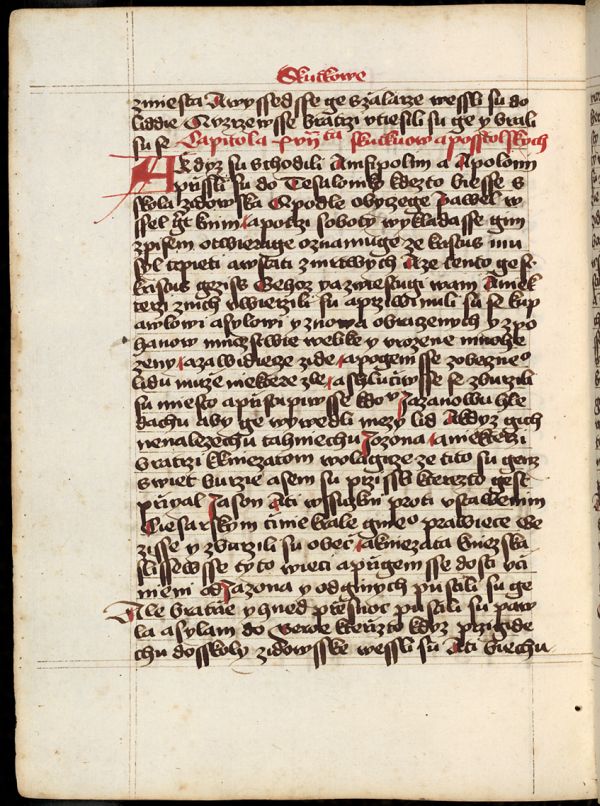 Skutkowe
zmiesta Awyssedsse ge szalarze wessli su do
liddie Auzrzewsse bratrzi vtiesili su ge y brali
su se Capitola xvii ta skutkuow apostolskych
A kdyz su schodili Amfipolim a Apolonim
przissli su do Tesaloniky kdezto biesse s
skola zidowska Apodle obyczege Pawel w
ssel gt knim a potrzi soboty wykladasse gim
zpisem otwieragie oznamuge ze kristus mu
syl trpieti awstati zmrtwych Aze tento gest
kristus gezis Gehoz yazwiestugi wam Aniek
terzi znich vwierzili su aprziwinuli su se kup
awlowi asylowi yznowa obraczenych yzpo
hanow mnozstwie welike y vrozene mnohe
zeny Azawidiecze zide Apogemsse zobeczneo
lidu muze niektere zle Aszluciwsse se zburzili
su miesto aprzistupiwsse kdo Jazonowu hle
dachu aby ge wywedli mezy lid Akdyz gich
nenalezechu tahniechu Jazona Aniekterzi
bratrzi kkniezatom wolagicze ze tito su genz
swiet burzie asem su przissli kterezto gest
przigal Jason Ati wssickni proti vstawenim
Ciesarskym czinie krale gineo prawiece ge
zisse y zburzili su obec Akniezata kniezska
slissewsse tyto wieci aprzigemsse dosti vczi
nieni od Jazona y odginych pustili su ge
Ale bratrie yhned przesnoc pustili su paw
la asylam do beroe kterizto kdyz przigide
chu dosskoly zidowsske wessli su Ati biechu